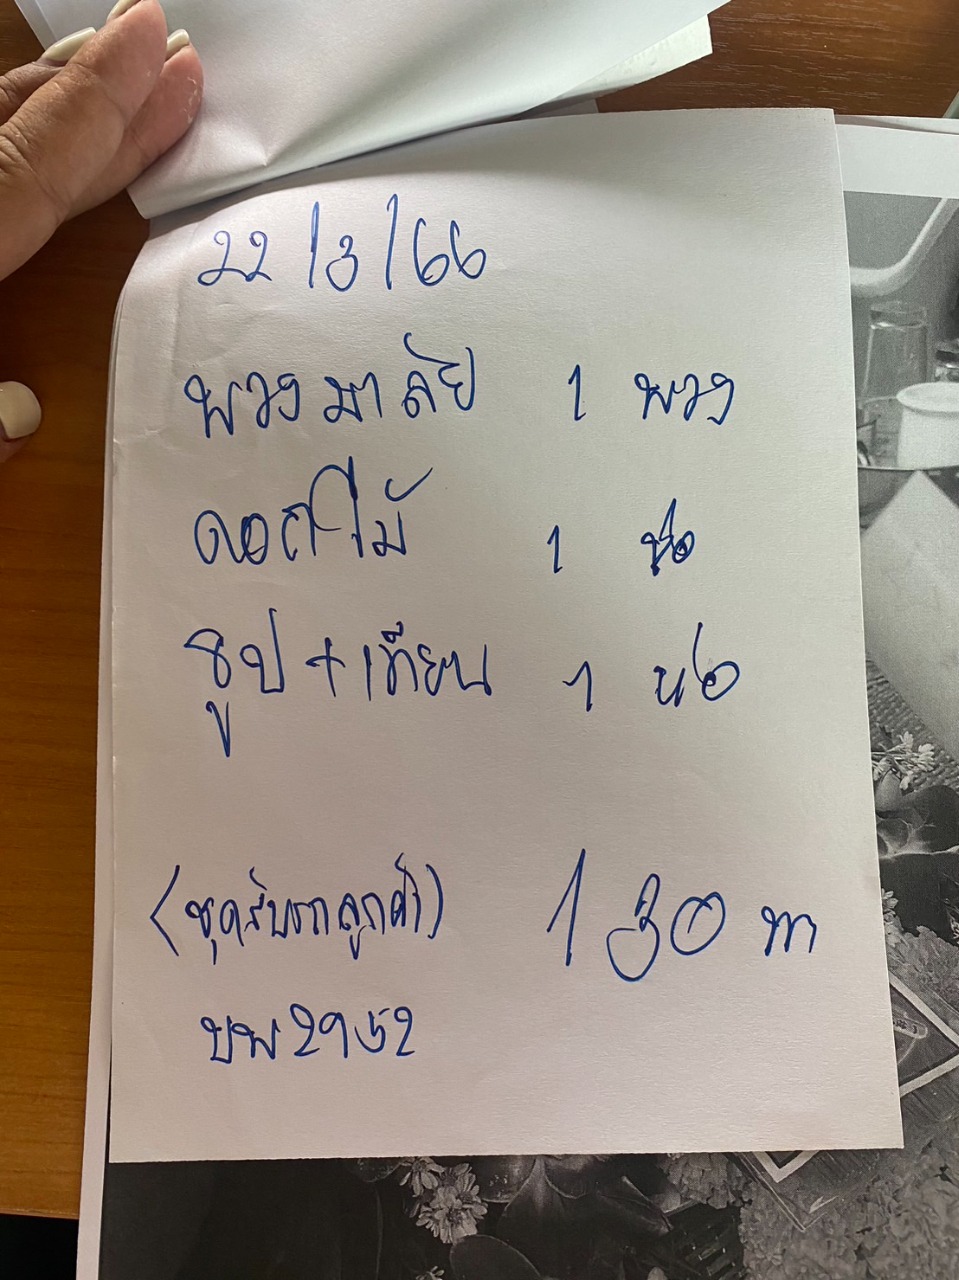 22/3/66
พวงมาลัย 1 พวง
ดอกไม้ 1 ช่อ
ธูป+เทียน 1 ห่อ
(ชุดรับรถลูกค้า) 130 บาท
บพ2952